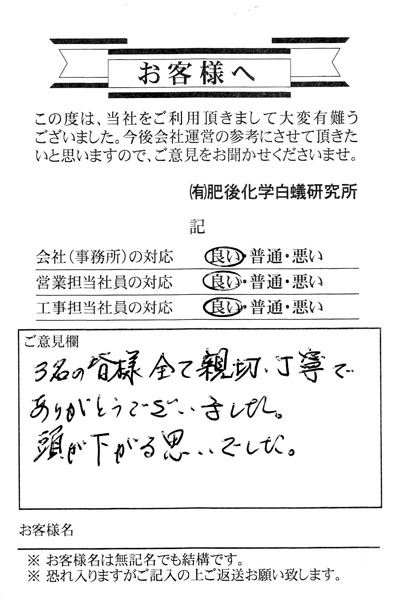 お客様へ
この度は、当社をご利用頂きまして大変有難う
ございました。今後会社運営の参考にさせて頂きた
いと思いますので、ご意見をお聞かせくださいませ。
㈲肥後化学白蟻研究所
記
会社(事務所)の対応 良い・普通・悪い
営業担当社員の対応 良い・普通・悪い
工事担当社員の対応 良い・普通・悪い
ご意見欄
3名の皆様全て親切、丁寧で
ありがとうございました。
頭が下がる思いでした。
お客様名
※ お客様名は無記名でも結構です。
※ 恐れ入りますがご記入の上ご返送お願い致します。